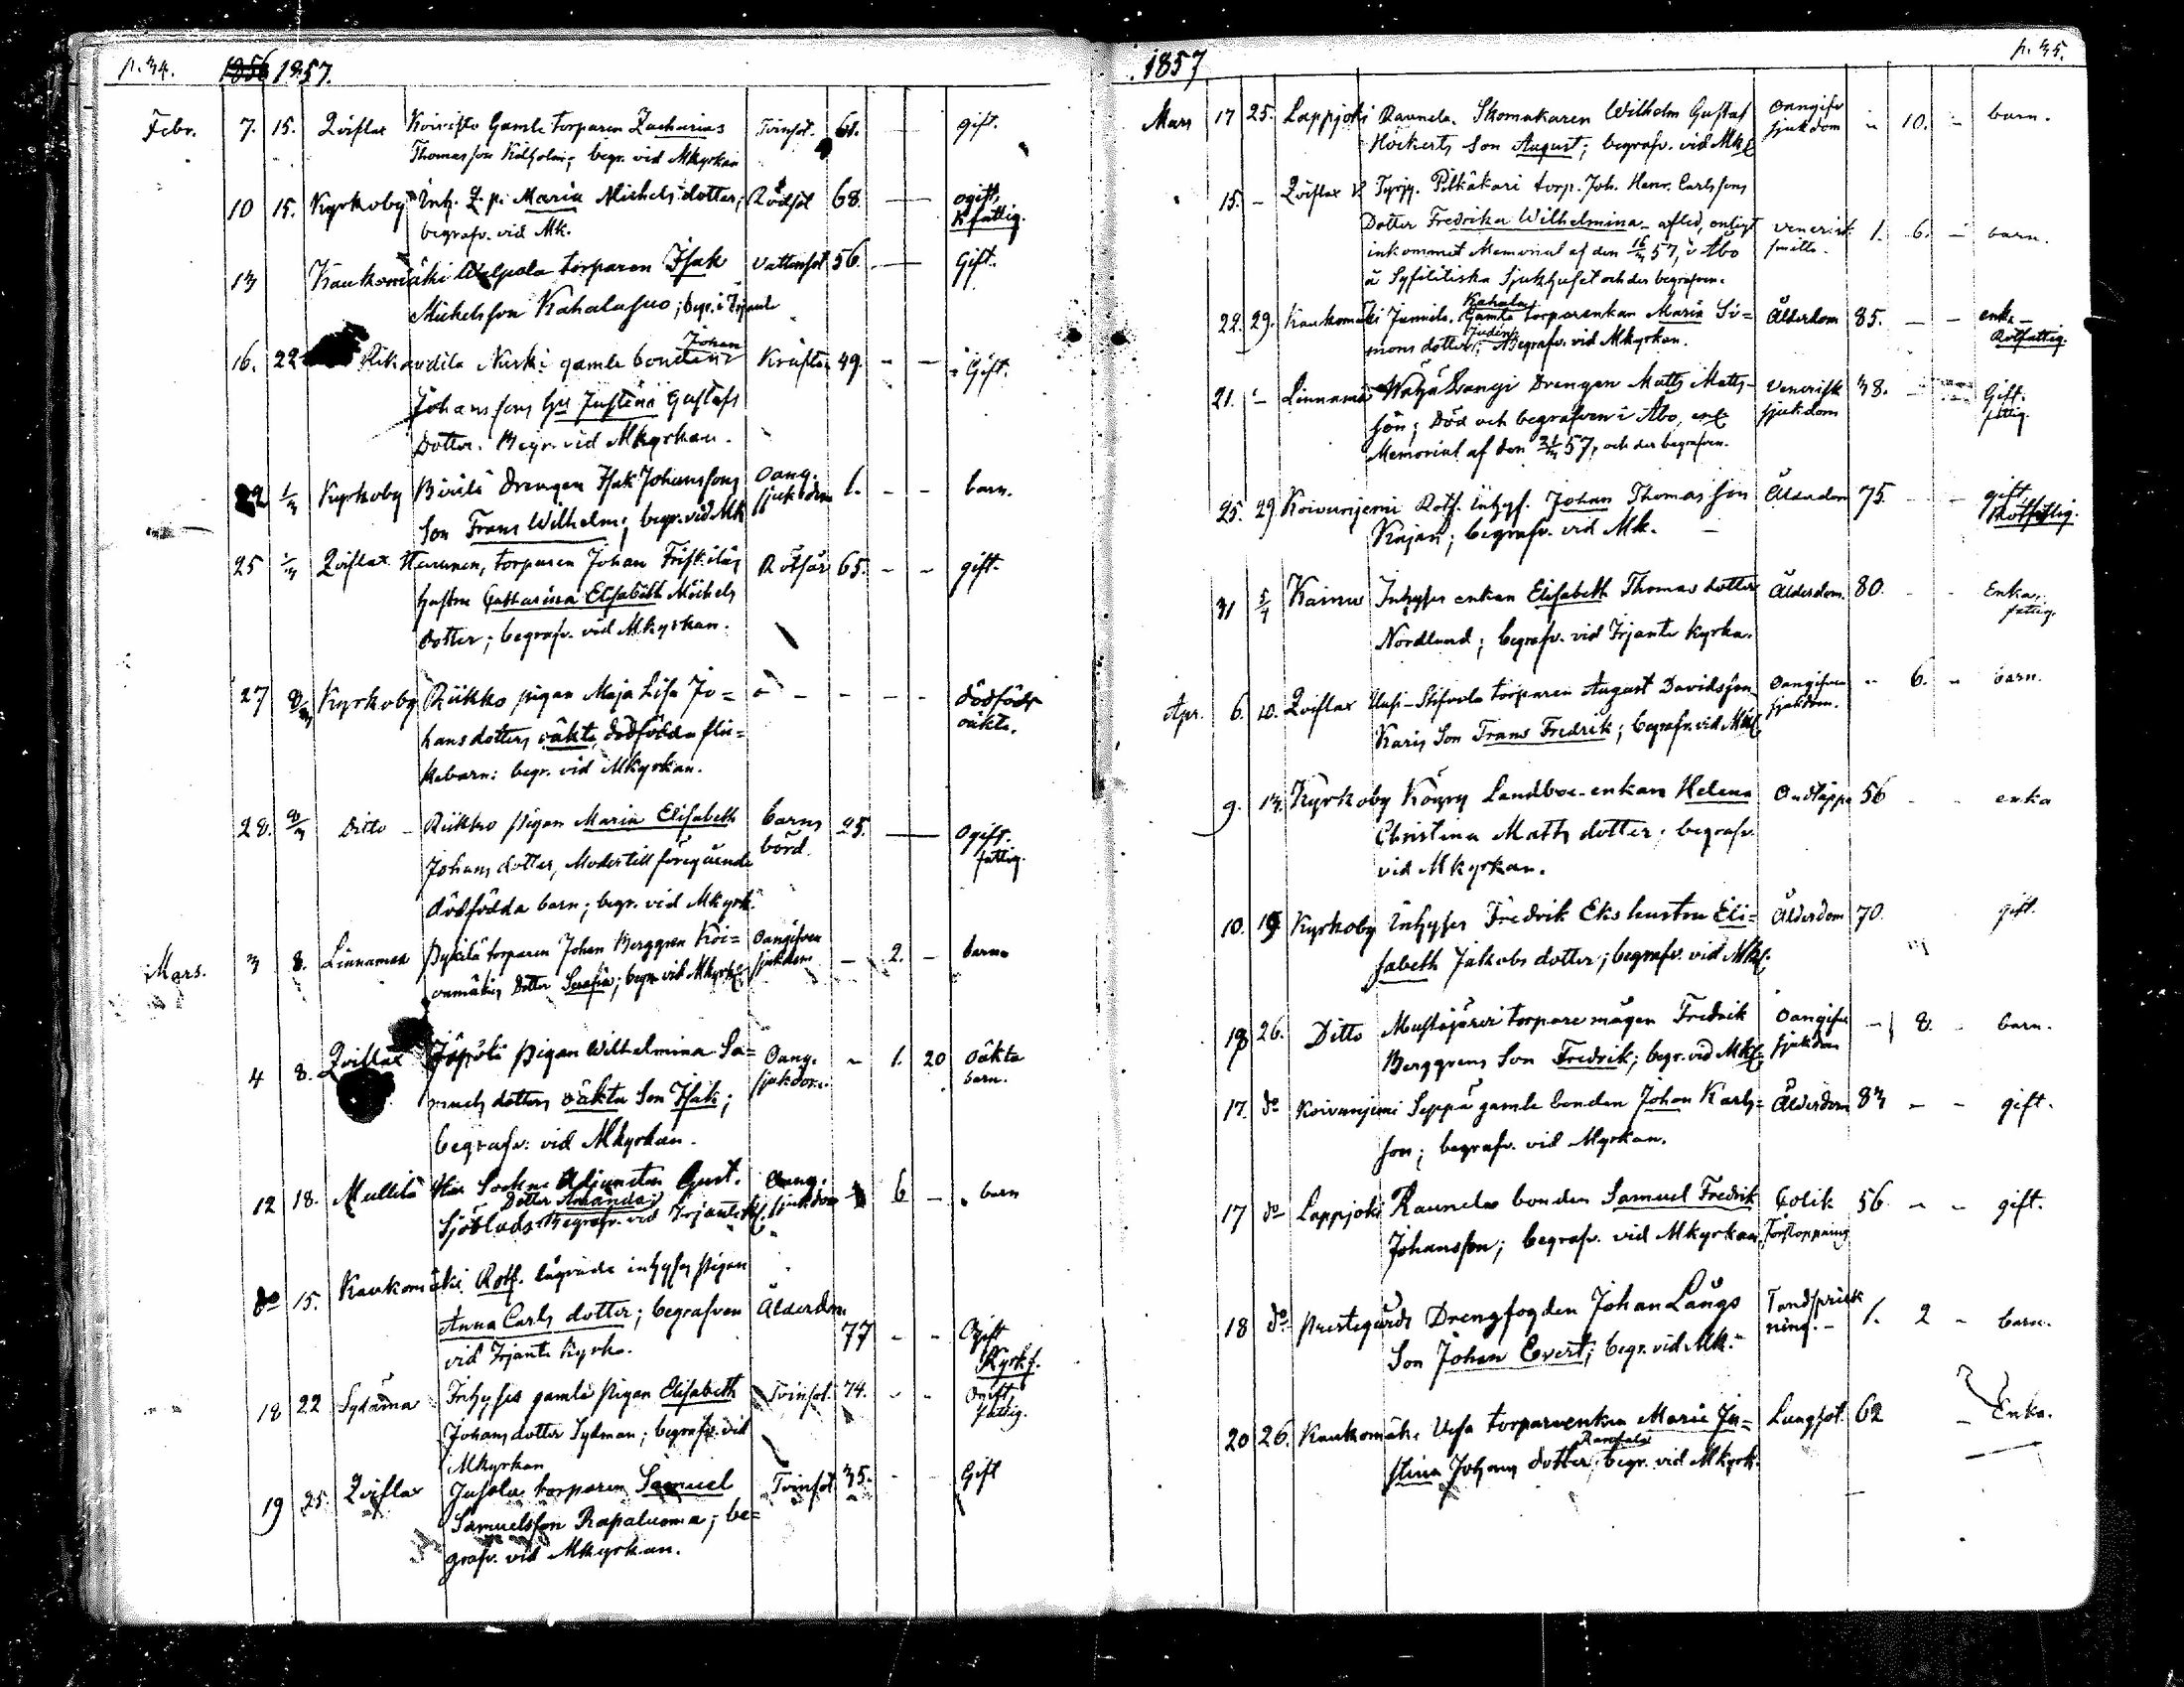 p. 34. 1856 1857.
Febr. 7. 15. Qviflax Koivisto Gamle torparen Zacharias Tvinsot. 61. — gift.
Thomasson Kilholm; begr. vid Mkyrkan
10 15. Kyrkoby Inh. P. p. Maria Michels dotter, Rödsot 68. — ogift,
begrafv. vid Mk. Kfattig.
13 Kaukomäki Uspola torparen Isak Vattensot 56. — Gift.
Michelsson Kahalasuo; begr. i Irjante
Johan
16. 22 Nurki gamle bondens Kräfta 49. - - Gift.
Johanssons Hu Justina Gustafs
Dotter. Begr. vid Mkyrkan.
22 1/3 Kyrkoby Pirilä drengen Isak Johanssons Oang. sjukdom 1. - - barn.
Son Frans Wilhelm; begr. vid Mk
25 1/3 Qviflax Harunen, torparen Johan Rötsår 65. - - gift.
hustru Catharina Elisabeth Michels
dotter; begrafv. vid Mkyrkan.
27 8/3 Kyrkoby Riikko pigan Maja Lisa Jo= - - - - dödfödt
hansdotters oäkta, dödfödda flic= oäkta.
kebarn: begr. vid Mkyrkan.
28. 8/3 Ditto Riikko pigan Maria Elisabeth barns 25. — Ogift.
Johans dotter, Moder till föregående börd. fattig.
dödfödda barn; begr. vid Mkyrk.
Mars. 3 8. Linnamaa Pykilä torparen Johan Berggren Koi= Oangifven — 2. - barn
vamäkis Dotter Serafia; begr. vid Mkyrk. sjukdom
4 8. Qviflax pigan Wilhelmina Sa= Oang. - 1. 20 Oäkta
muels dotters oäkta Son Isak; sjukdom. barn.
begrafv. vid Mkyrkan.
12 18. Mullilä Socknе Adjuncten Gust. Oang. 6 - barn
Dotter Amanda;
Sjöblads Begrafv. vid Irjante K. sjukdom
do 15. Kaukomäki Rotf. inhyses pigan
Anna Carls dotter; begrafven Ålderdom 77 - - Ogift
vid Irjante Kyrka. Kyrkf.
18 22 Sydäma Inhyses gamla pigan Elisabeth Tvinsot. 74. - - Ogift,
Johans dotter Sydman; begrafv. vid fattig.
Mkyrkan
19 25. Qviflax Jusola torparen Samuel Tvinsot 35. - - Gift
Samuelsson Rapaluoma; be=
grafv. vid Mkyrkan.
1857 p. 35.
Mars 17 25. Lappjoki Raunela. Skomakaren Wilhelm Gustaf Oangifv - 10. - barn.
Höckerts Son August; begrafv. vid Mk sjukdom
15. - Qviflax Pitkäkari torp. Joh. Henr. Carlssons
Dotter Fredrika Wilhelmina - afled, enligt venerisk 1. 6. - barn.
inkommet Memorial af den 16/3 57, i Åbo smitta.
å Syfilitiska Sjukhuset och der begrafven.
Kahala
22. 29. Kaukomäki Junnila. Gamla torparenkan Maria Si= Ålderdom 85. - - enka
mons dotter; Begrafv. vid Mkyrkan. Rotfattig.
21. - Linnamaa Drengen Matts Matts= Venerisk 38. - Gift.
son; Död och begrafven i Åbo, enl sjukdom fattig.
Memorial af den 57, och der begrafven.
25. 29. Koivuniemi Rotf. Inhys. Johan Thomasson Ålderdom 75. - - gift,
Kajan; begrafv. vid Mk. Rotfattig.
31 5/4 Kainu Inhyses enkan Elisabeth Thomas dotter Ålderdom. 80. - - Enka,
Nordlund; begrafv. vid Irjante Kyrka. fattig.
Apr. 6. 10. Qviflax torparen August Davidsson Oangifven - 6. - barn.
Karis Son Frans Fredrik; begrafv. vid Mk sjukdom.
9. 13. Kyrkoby Landboe-enkan Helena Andtäppa 56 - - enka
Christina Matts dotter; begrafv.
vid Mkyrkan.
10. 19 Kyrkoby Inhyses Fredrik Eks hustru Eli= Ålderdom 70. gift.
sabeth Jakobs dotter; begrafv. vid Mk.
18 26. Ditto Mustajärvi torparemågen Fredrik Oangifv - 8. - barn.
Berggrens Son Fredrik; begr. vid Mk sjukdom
17. do Koivuniemi Seppä gamle bonden Johan Karls= Ålderdom 83 - - gift.
son; begrafv. vid Mkyrkan.
17 do Lappjoki Raunela bonden Samuel Fredrik Colik 56 - - gift.
Johansson; begrafv. vid Mkyrkan Förstoppning
18 do Prestegårds Drengfogden Johan Långs Tandsprick 1. 2 - barn.
Son Johan Evert; begr. vid Mk. ning. -
20 26. Kaukomäki Uusa torparenkan Maria Ju= Lungsot. 62 - Enka.
stina Johans dotter; begr. vid Mkyrk.